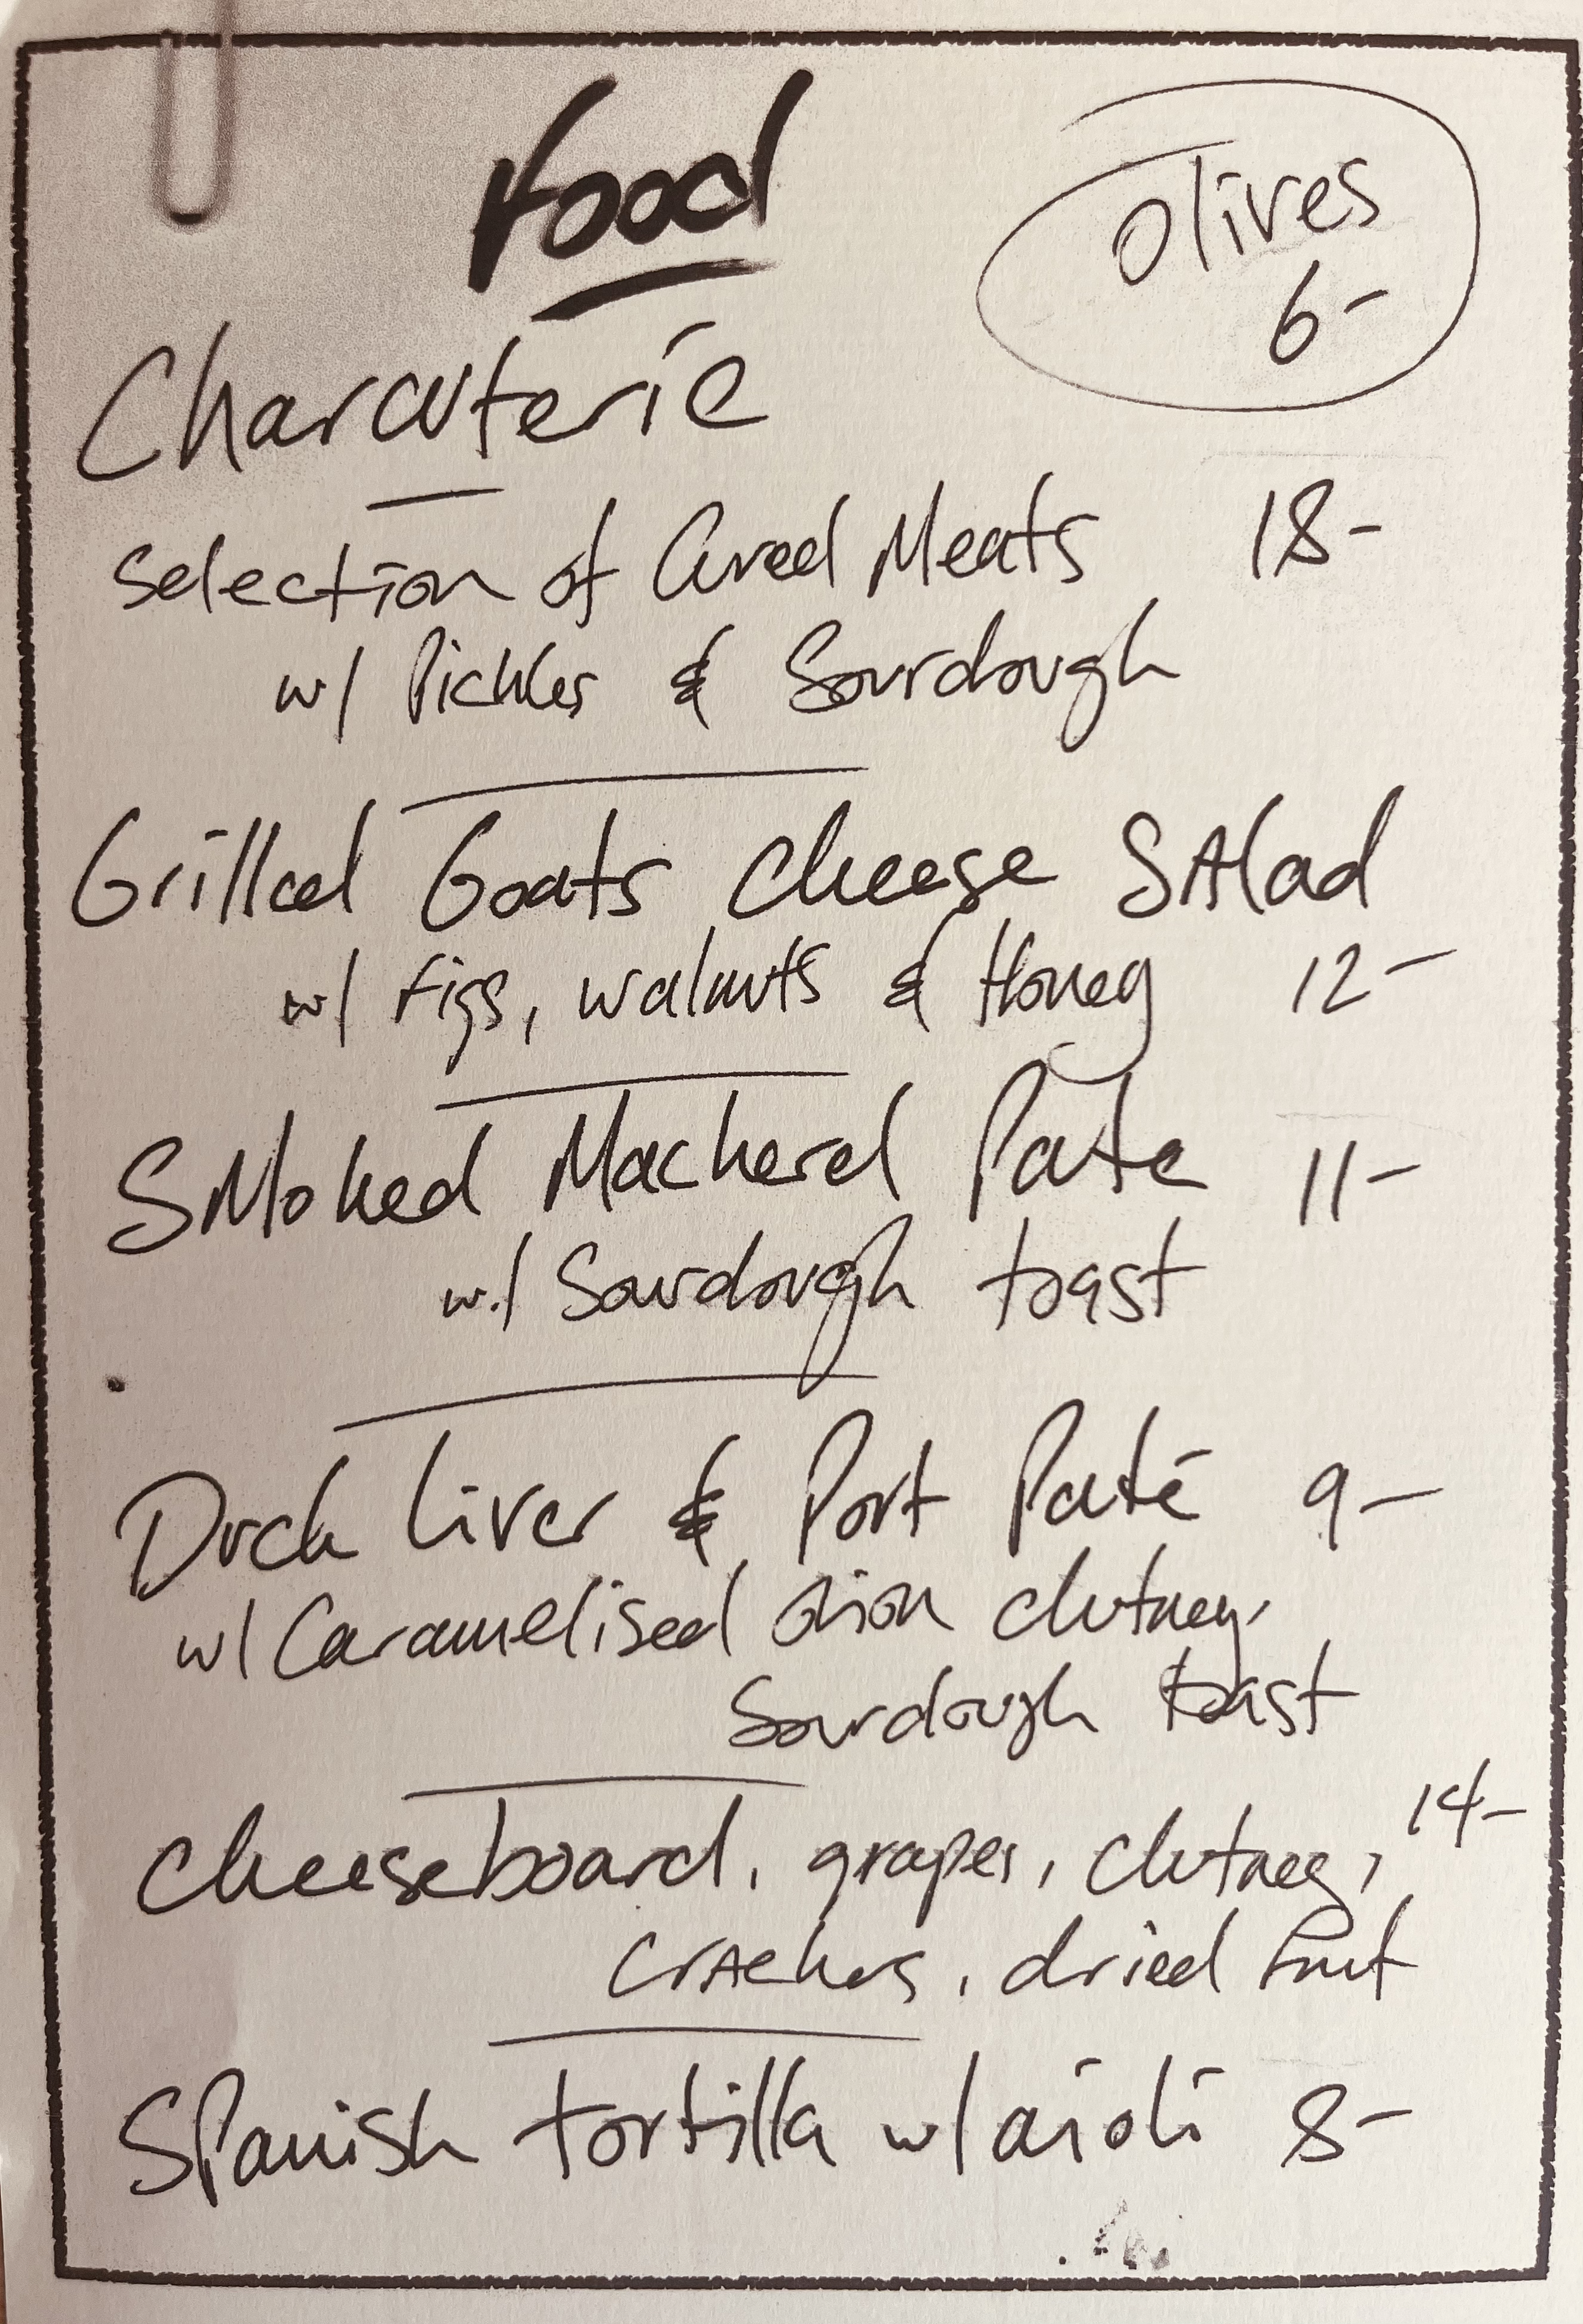 Food
Olives
6-
Charcuterie
Selection of Cured Meats 18-
w/ Pickles & Sourdough
Grilled Goats Cheese SAlad
w/ Figs, walnuts & Honey 12-
SMoked Mackerel Pate 11-
w/ Sourdough toast
Duck Liver & Port Paté 9-
w/ Caramelised onion chutney.
Sourdough toast
Cheeseboard, grapes, chutney, 14-
crAckers, dried fruit
SPanish tortilla w/ aioli 8-